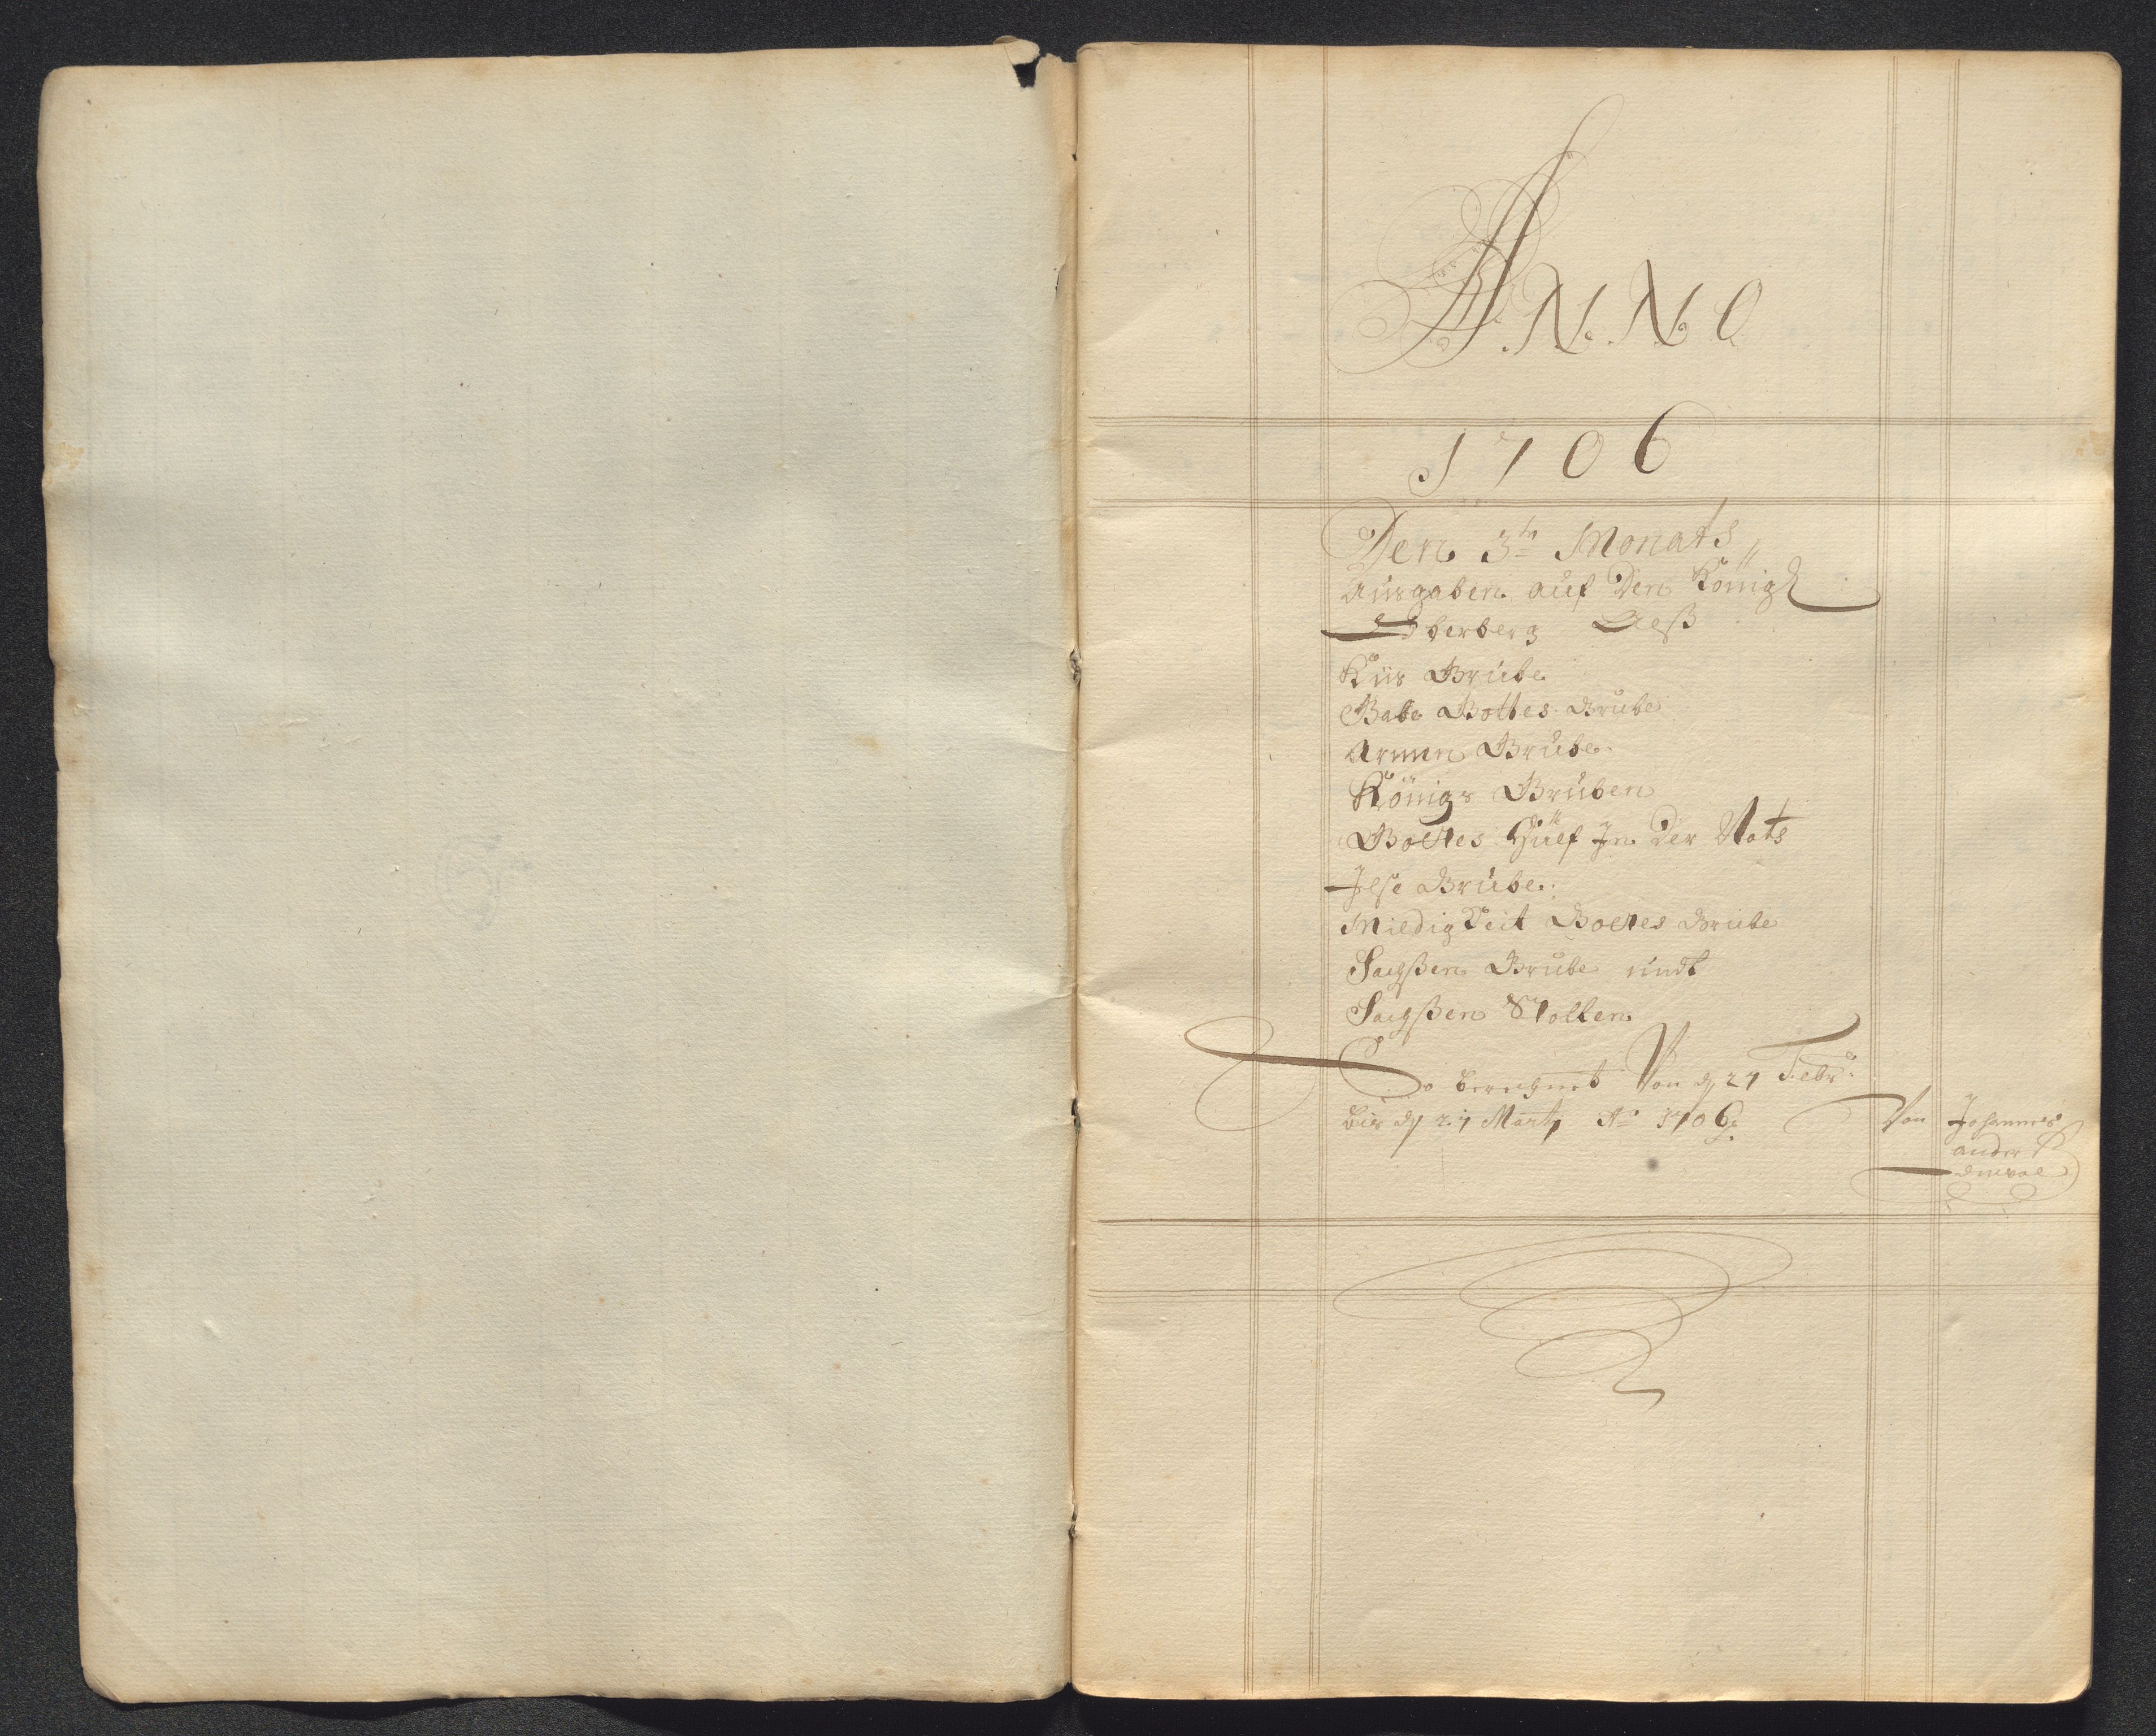 A.N.N.O
1706
Den 3tn Monats
Ausgaben auf Den Königl
Oberberg
Küs Grube
Gabe Gottes Grube
Armen Grube
Königs Gruben
Gottes Hülf Jn Der Noth
Jlse Grube
Mildigkeit Gottes Grube
Sachßen Grube undt
Sachßen Stollen
So berechnet Von dn 27 Febr:
bis dn 27 Marty Ao 1706
Von Johannes
Anders